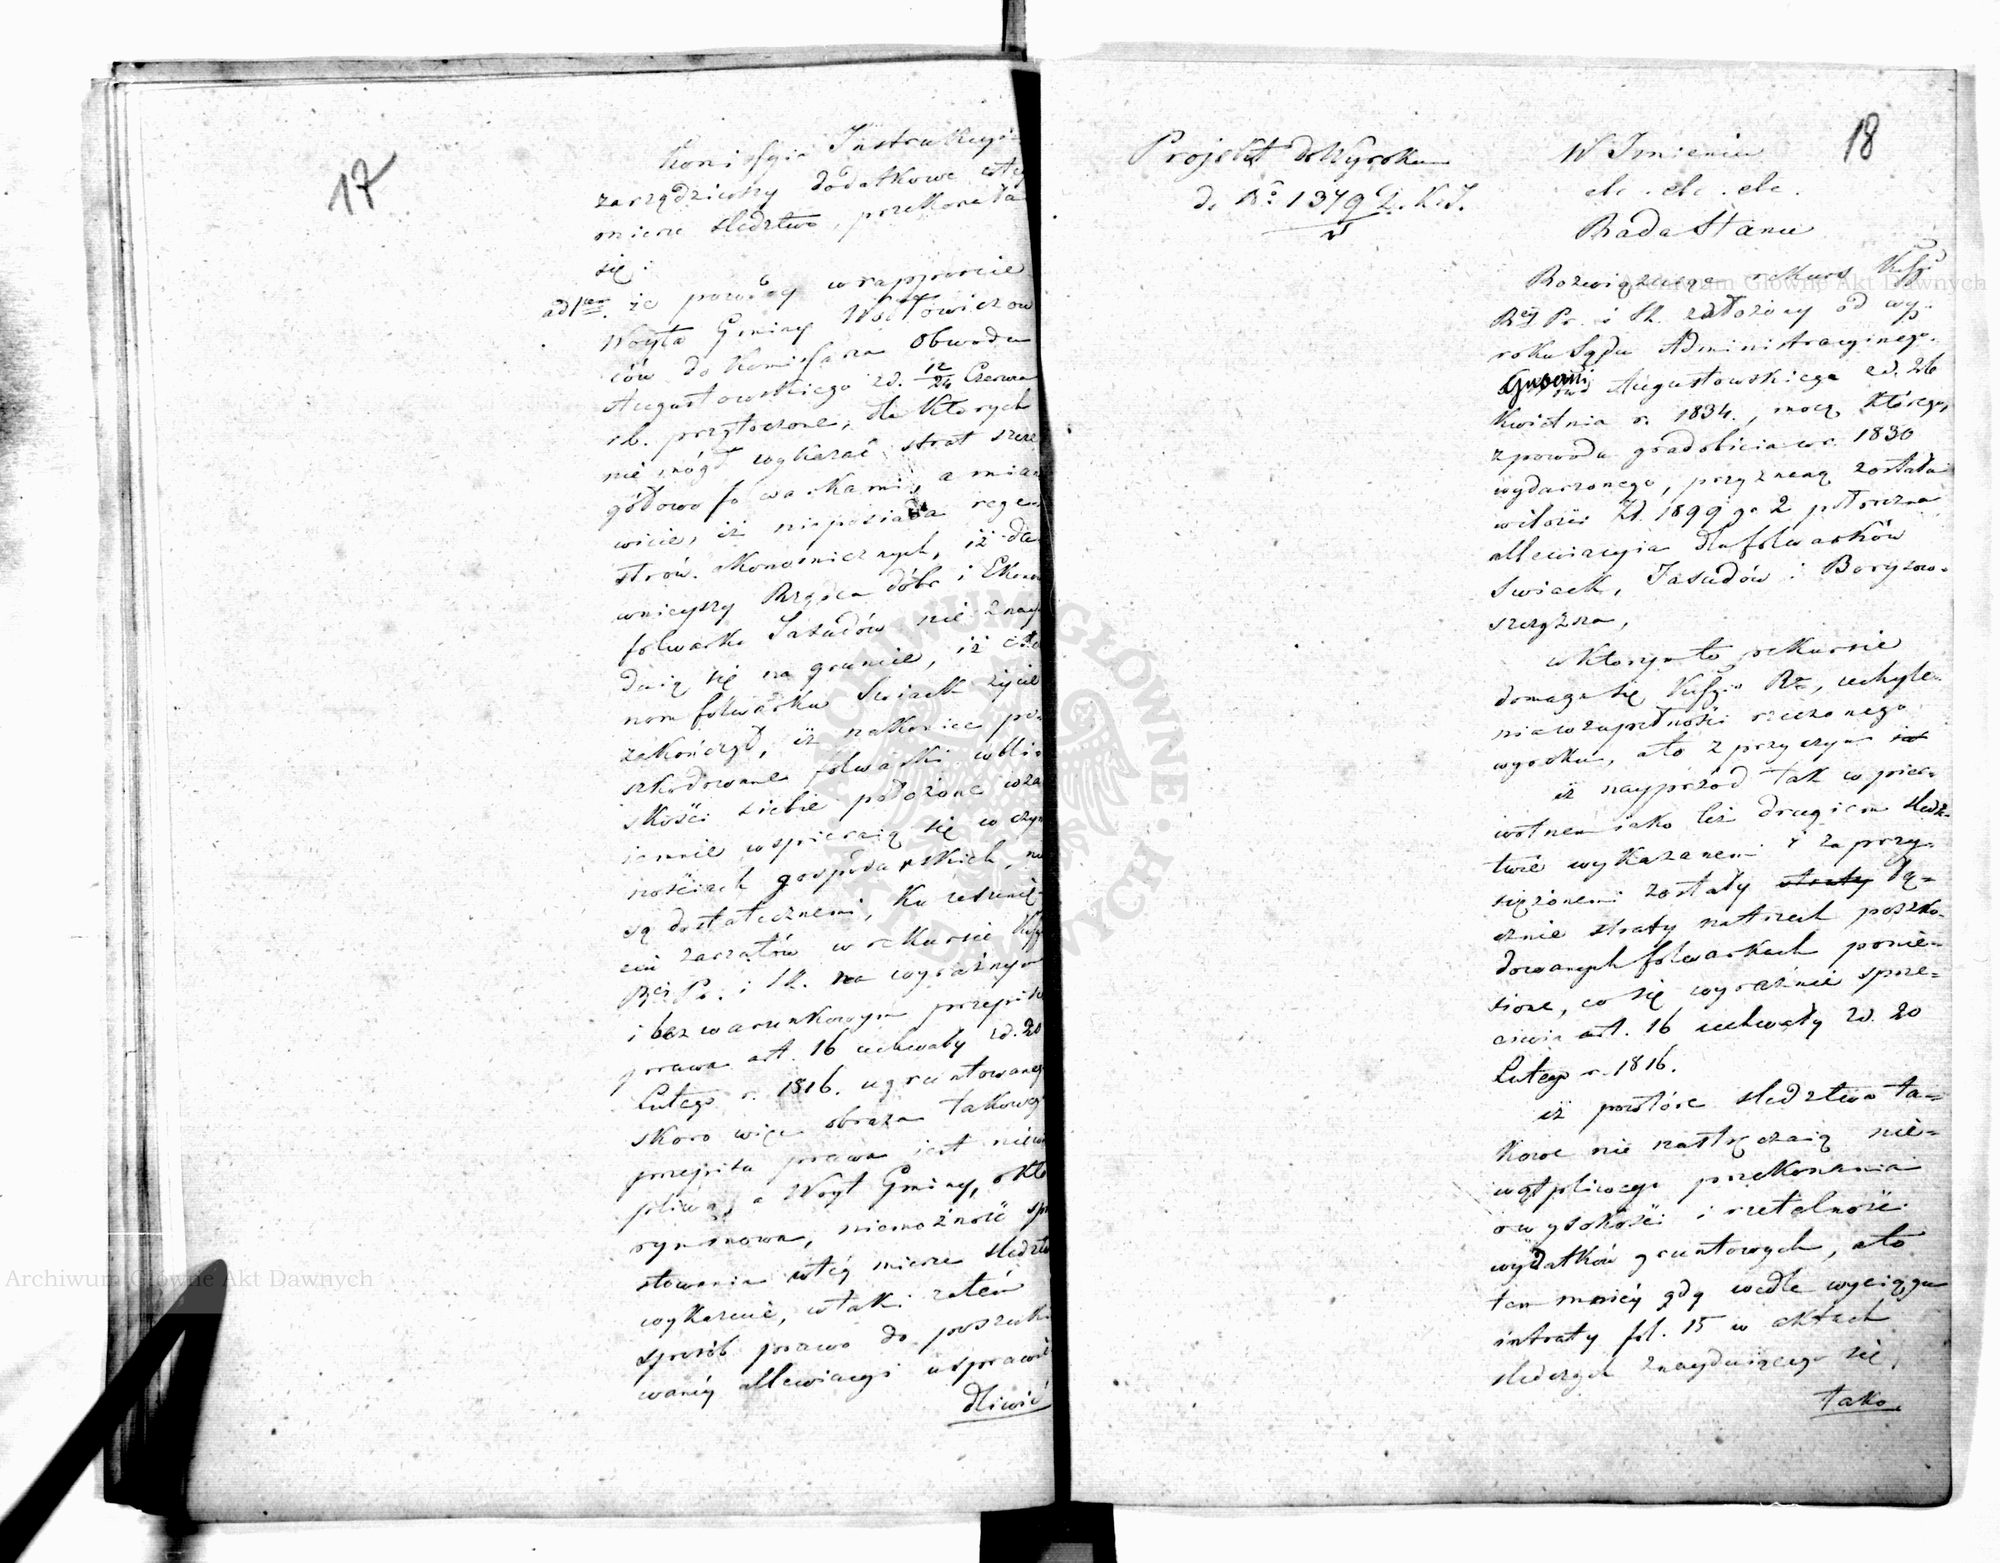 17
Komissyia Instrukcyi
zarządziwszy dodatkowe w tey
mierze śledztwo, przekonała
się:
ad 1um. że powody w rapporcie
Woyta Gminy Wołłowiczow
ców do Komisarza Obwodu
Augustowskiego z d. 12/24 Czerwca
r. b. przytoczone, dla których
nie mógł wykazać strat szcze
gółowo folwarkami, a miano
wicie, iż nieposiada rege
strów ekonomicznych, iż da
wnieyszy Rządca dóbr i Ekonom
folwarku Jasudów nie znay
duią się na gruncie, iż eko
nom folwarku Swiack życie
zakończył, iż nakoniec po
szkodowane folwarki w bli
skości siebie położone wza
iemnie wspieraią się w czyn
nościach gospodarskich, nie
są dostatecznemi, ku usunię
ciu zarzutów w rekursie Kssyi
Rej Pr. i Sk. na wyraźnym
i bezwarunkowym przepisie
prawa art. 16 uchwały z d. 20
Lutego r. 1816. ugruntowanych
skoro więc obraza takowego
przepisu prawa iest niewą
pliwą, a Woyt Gminy, o któ
rym mowa, niemożność spro
stowania w tey mierze śledztwa
wykazuie, w taki zatem
sposób prawo do poszuki
waney allewiacyi usprawie
dliwić
18
Projekt do Wyroku
d. No 1379 D. K. I.
W Imieniu
etc. etc. etc.
Rada Stanu
Rozwiązuiąc rekurs Kssyi
Rej Pr. i Sk. założony od wy
roku Sądu Administracyinego
Gubernii Augustowskiego z d. 26
Kwietnia r. 1834., mocą którego,
z powodu gradobicia w r. 1830
wydarzonego, przyznaną została
w ilości Zł. 1899 gr 2 półroczna
allewiacyia dla folwarków
Swiack, Jasudów i Boryzow-
szczyzna,
w którym to rekursie
domaga się Kssyia Rza, uchyle-
nia w zupełności rzeczonego
wyroku, a to z przyczyn
iż nayprzód tak w pier-
wotnem iako też drugiem śledz-
twie wykazanemi i zaprzy-
siężonemi zostały straty łą-
cznie straty na trzech poszko-
dowanych folwarkach ponie-
sione, co się wyraźnie sprze-
ciwia art. 16 uchwały z d. 20
Lutego r. 1816.
iż powtóre śledztwa ta-
kowe nie nastręczaią nie-
wątpliwego przekonania
o wysokości i rzetelności
wydatków gruntowych, a to
tem mniéy gdy wedle wyciągu
intraty fol. 15 w aktach
śledczych znayduiącego się,
tako